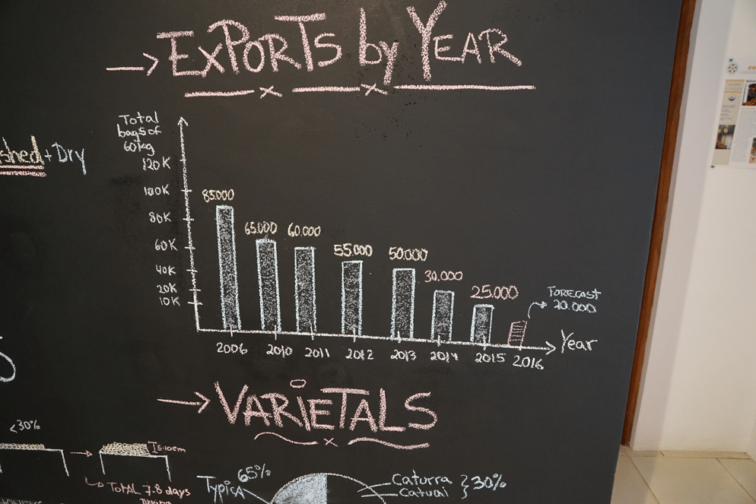 → EXPORTS by YEAR
Total
bags of
60kg
120K
100K
80K
60K
40K
20K
10K
85.000
65.000
60.000
55.000
50.000
30.000
25.000
FORECAST
20.000
2006 2010 2011 2012 2013 2014 2015 2016
Year
shed + Dry
→ VARIETALS
<30%
TOTAL 7.8 days
Typica 65%
Caturra
Catuai
30%